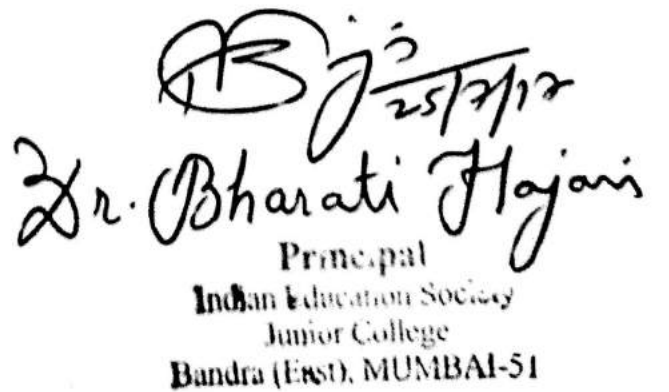 25/7/17
Dr. Bharati Hajaris
Principal
Indian Education Society
Junior College
Bandra (East), MUMBAI-51